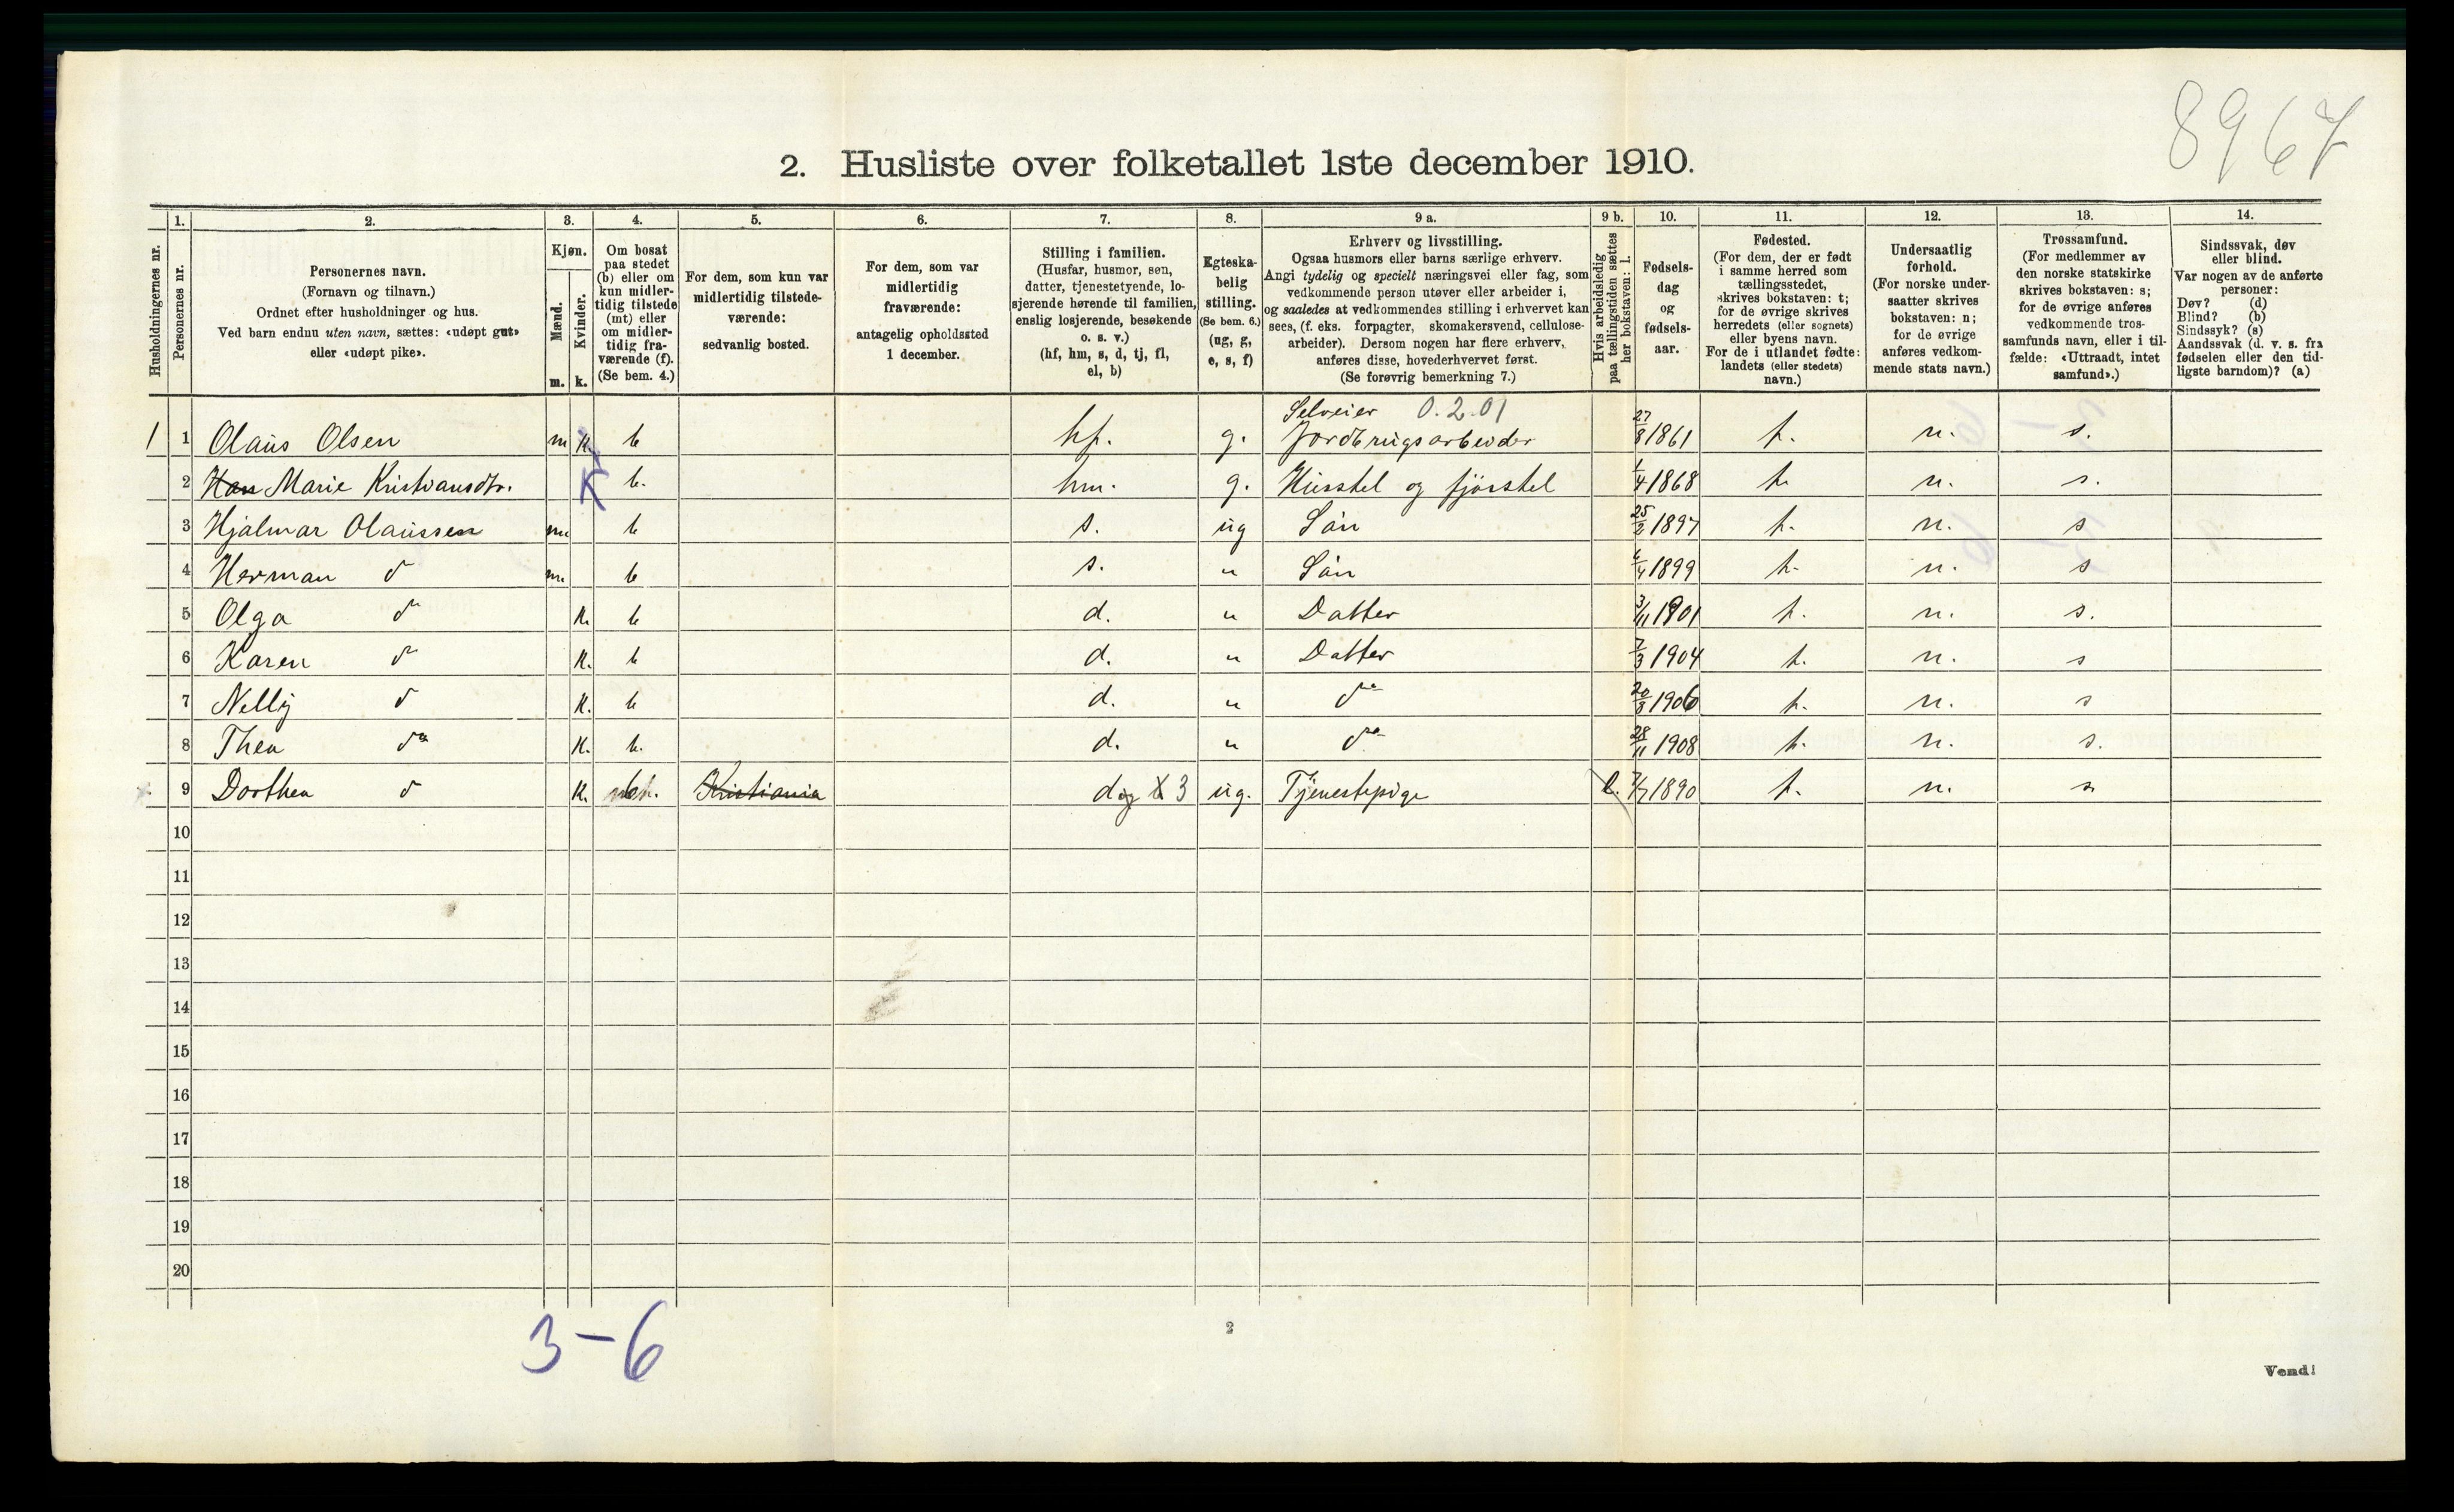 8967
2. Husliste over folketallet 1ste december 1910.
Husholdningernes nr.
1. Personernes nr.
2. Personernes navn.
(Fornavn og tilnavn.)
Ordnet efter husholdninger og hus.
Ved barn endnu uten navn, sættes: «udøpt gut»
eller «udøpt pike».
3. Kjøn.
Mænd. Kvinder.
m. k.
4. Om bosat
paa stedet
(b) eller om
kun midler-
tidig tilstede
(mt) eller
om midler-
tidig fra-
værende (f).
(Se bem. 4.)
5. For dem, som kun var
midlertidig tilstede-
værende:
sedvanlig bosted.
6. For dem, som var
midlertidig
fraværende:
antagelig opholdssted
1 december.
7. Stilling i familien.
(Husfar, husmor, søn,
datter, tjenestetyende, lo-
sjerende hørende til familien,
enslig losjerende, besøkende
o. s. v.)
(hf, hm, s, d, tj, fl,
el, b)
8. Egteska-
belig
stilling.
(Se bem. 6.)
(ug, g,
e, s, f)
9 a. Erhverv og livsstilling.
Ogsaa husmors eller barns særlige erhverv.
Angi tydelig og specielt næringsvei eller fag, som
vedkommende person utøver eller arbeider i,
og saaledes at vedkommendes stilling i erhvervet kan
sees, (f. eks. forpagter, skomakersvend, cellulose-
arbeider). Dersom nogen har flere erhverv,
anføres disse, hovederhvervet først.
(Se forøvrig bemerkning 7.)
9 b. Hvis arbeidsledig
paa tællingstiden sættes
her bokstaven: l.
10. Fødsels-
dag
og
fødsels-
aar.
11. Fødested.
(For dem, der er født
i samme herred som
tællingsstedet,
skrives bokstaven: t;
for de øvrige skrives
herredets (eller sognets)
eller byens navn.
For de i utlandet fødte:
landets (eller stedets)
navn.)
12. Undersaatlig
forhold.
(For norske under-
saatter skrives
bokstaven: n;
for de øvrige
anføres vedkom-
mende stats navn.)
13. Trossamfund.
(For medlemmer av
den norske statskirke
skrives bokstaven: s;
for de øvrige anføres
vedkommende tros-
samfunds navn, eller i til-
fælde: «Uttraadt, intet
samfund».)
14. Sindssvak, døv
eller blind.
Var nogen av de anførte
personer:
Døv? (d)
Blind? (b)
Sindssyk? (s)
Aandssvak (d. v. s. fra
fødselen eller den tid-
ligste barndom)? (a)
Selveier 0.2.01
1 1 Olaus Olsen m k. b hf. g. Jordbrugsarbeider 27/8 1861 t. n. s.
2 Han Marie Kristiansdtr. K b. hm. g. Husstel og fjösstel 1/4 1868 t. n. s.
3 Hjalmar Olaussen m b s. ug Sön 25/2 1897 t. n. s
4 Herman do m b s. " Sön 6/4 1899 t. n. s
5 Olga do k. b d. " Datter 3/11 1901 t. n. s.
6 Karen do k. b d. " Datter 7/3 1904 t. n. s
7 Nelly do k. b d. " do 20/8 1906 t. n. s
8 Thea do k. b. d. " do 28/11 1908 t. n. s.
9 Dorthea do k. Kristiania d X 3 ug. Tjenestepige l. 7/7 1890 t. n. s
10
11
12
13
14
15
16
17
18
19
20
3-6
2
Vend!